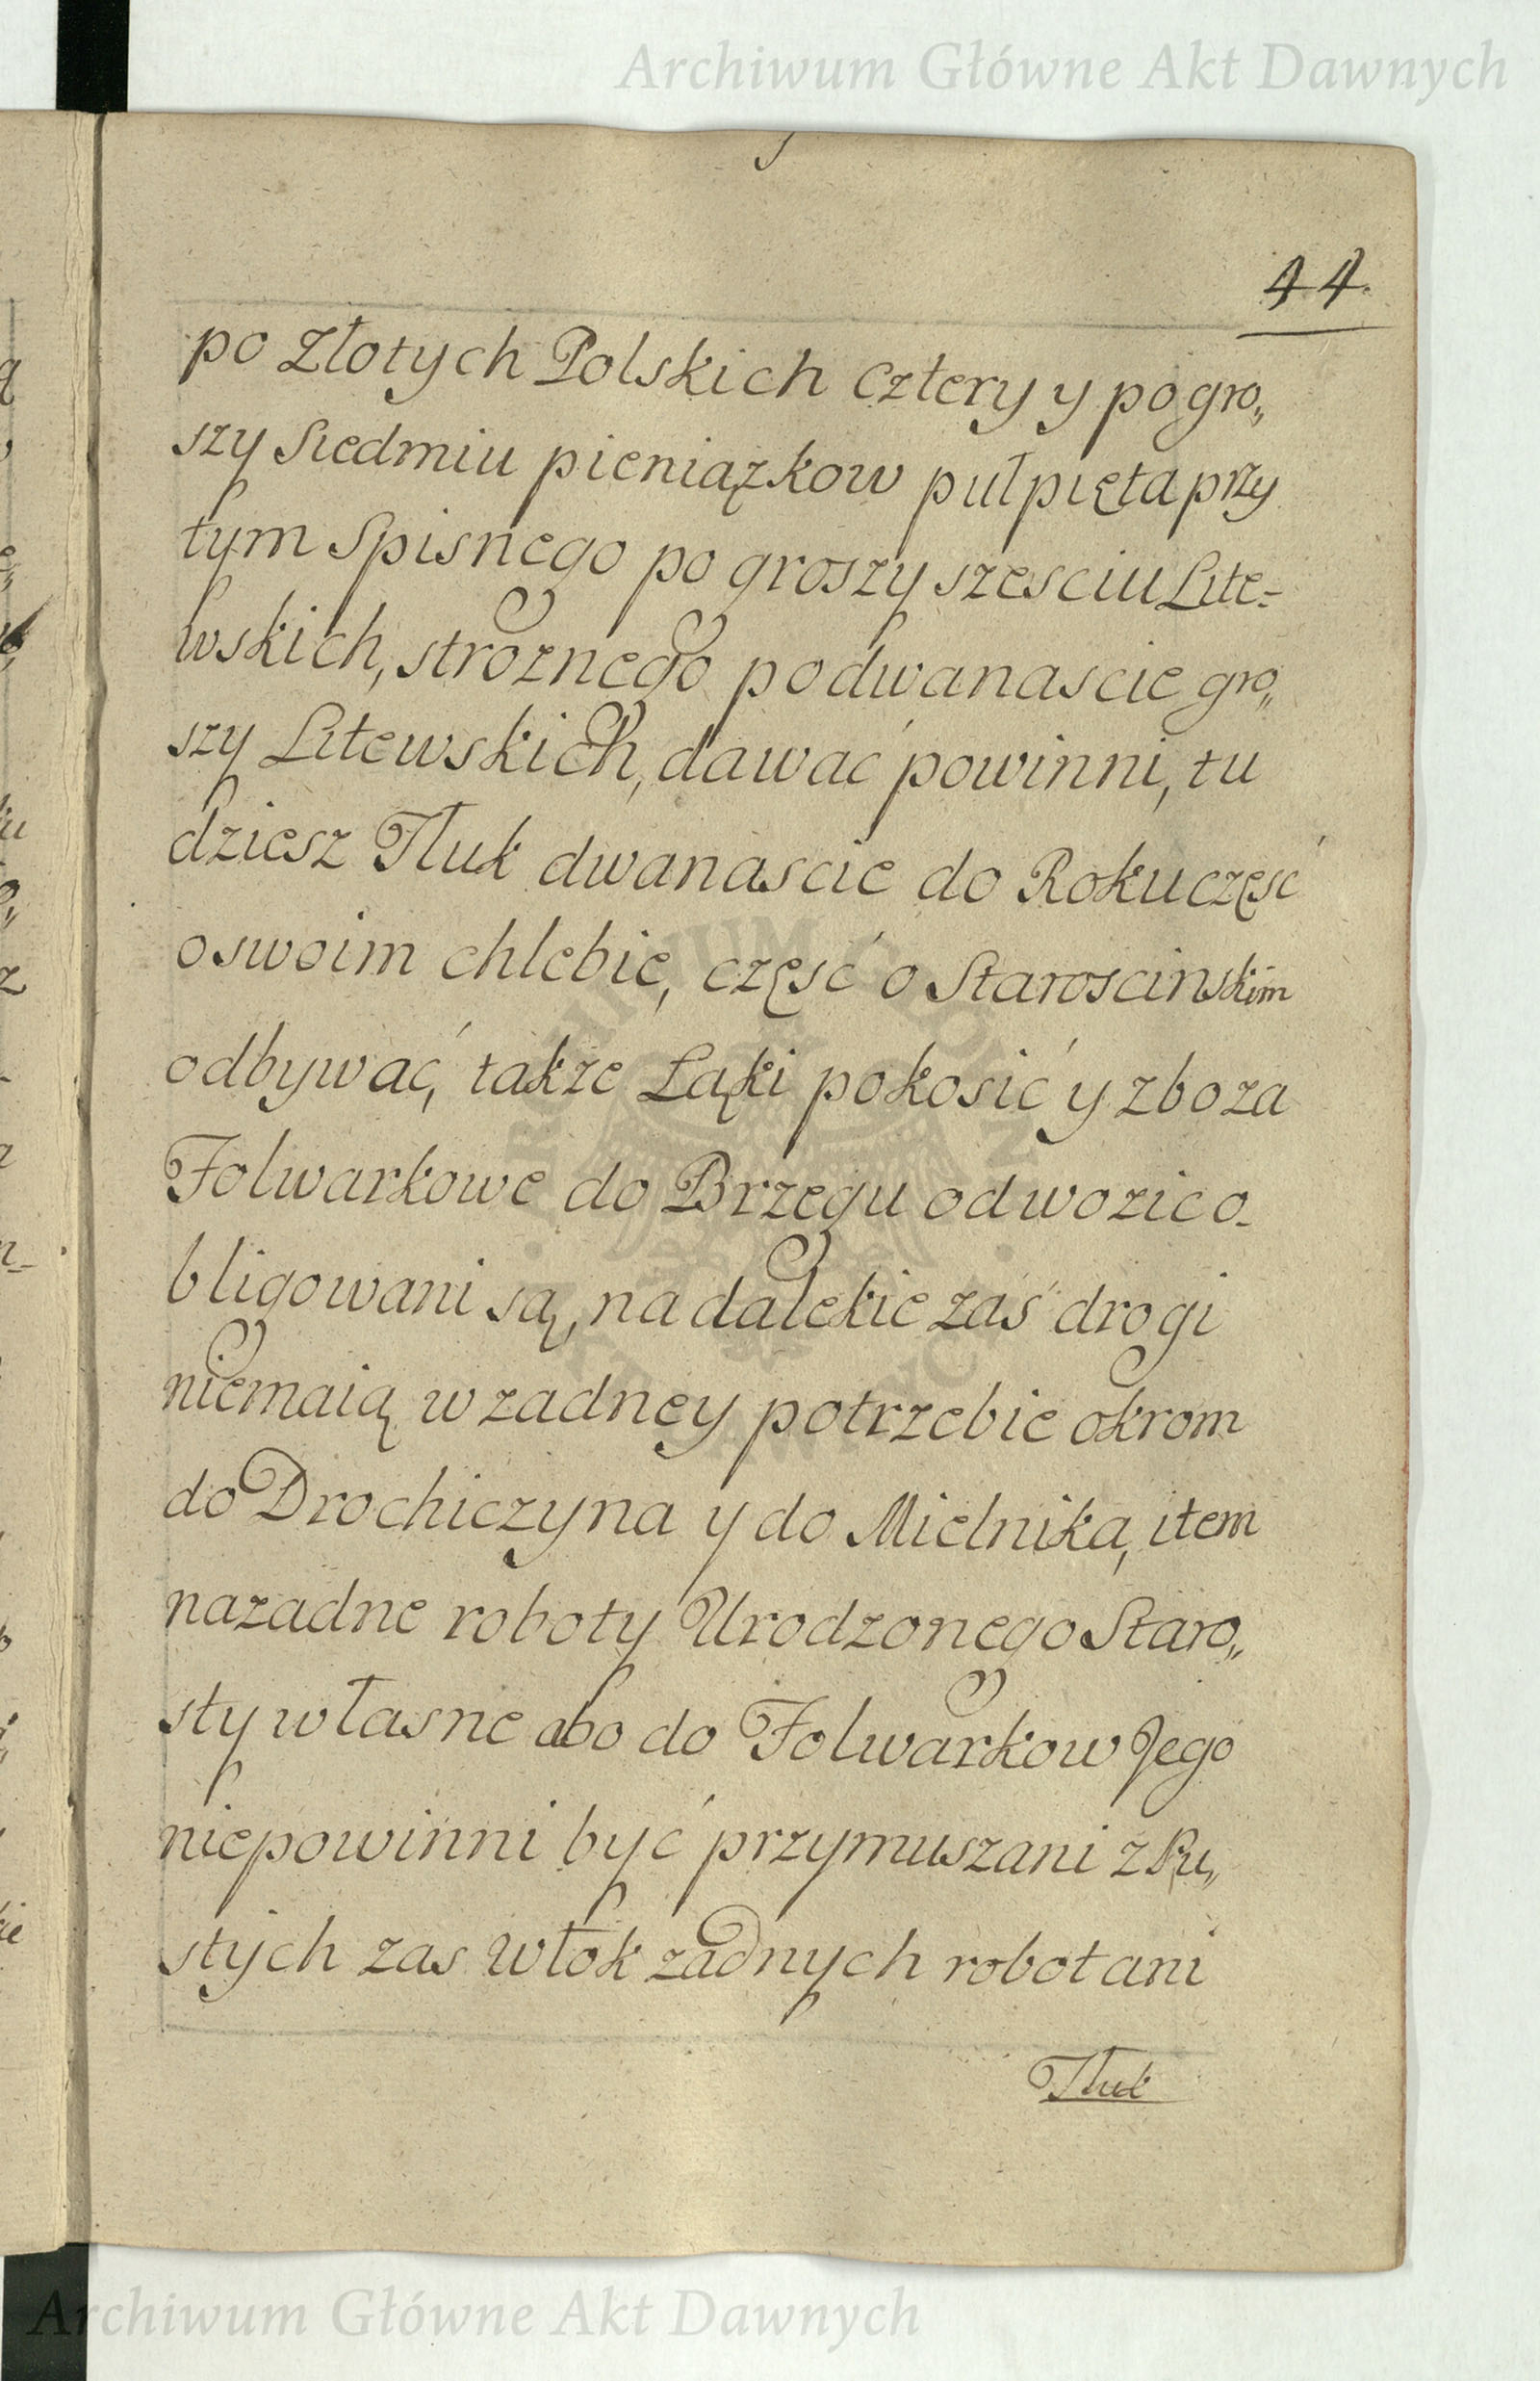 Archiwum Główne Akt Dawnych
44.
po Złotych Polskich cztery y po gro„
szy siedmiu pieniązkow puł pięta przy
tym Spisnego po groszy szesciu Lite=
wskich, stroznego po dwanascie gro„
szy Litewskich, dawać powinni, tu
dziesz Tłuk dwanascie do Roku częsć
o swoim chlebie, częsć o Staroscinskim
odbywać, takze Łąki pokosić y zboza
Folwarkowe do Brzegu odwozic o-
bligowani są, na dalekie zaś drogi
niemaią w zadney potrzebie okrom
do Drochiczyna y do Mielnika, item
na zadne roboty Urodzonego Staro„
sty własne abo do Folwarkow Jego
niepowinni być przymuszani z Pu„
stych zas Włok zadnych robot ani
Tłuk
Archiwum Główne Akt Dawnych